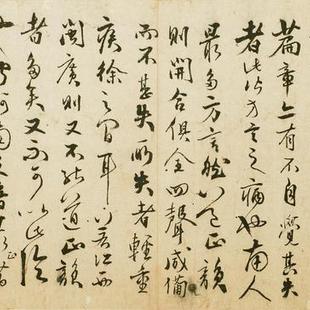 篇章上有不自覺其失
者此皆方言之病也南人
最多方言然正韻
則開合俱全四聲咸備
而不甚失所失者輕重
疾徐之間耳江西
閩廣則又不能道正韻
者多矣又不可以此論